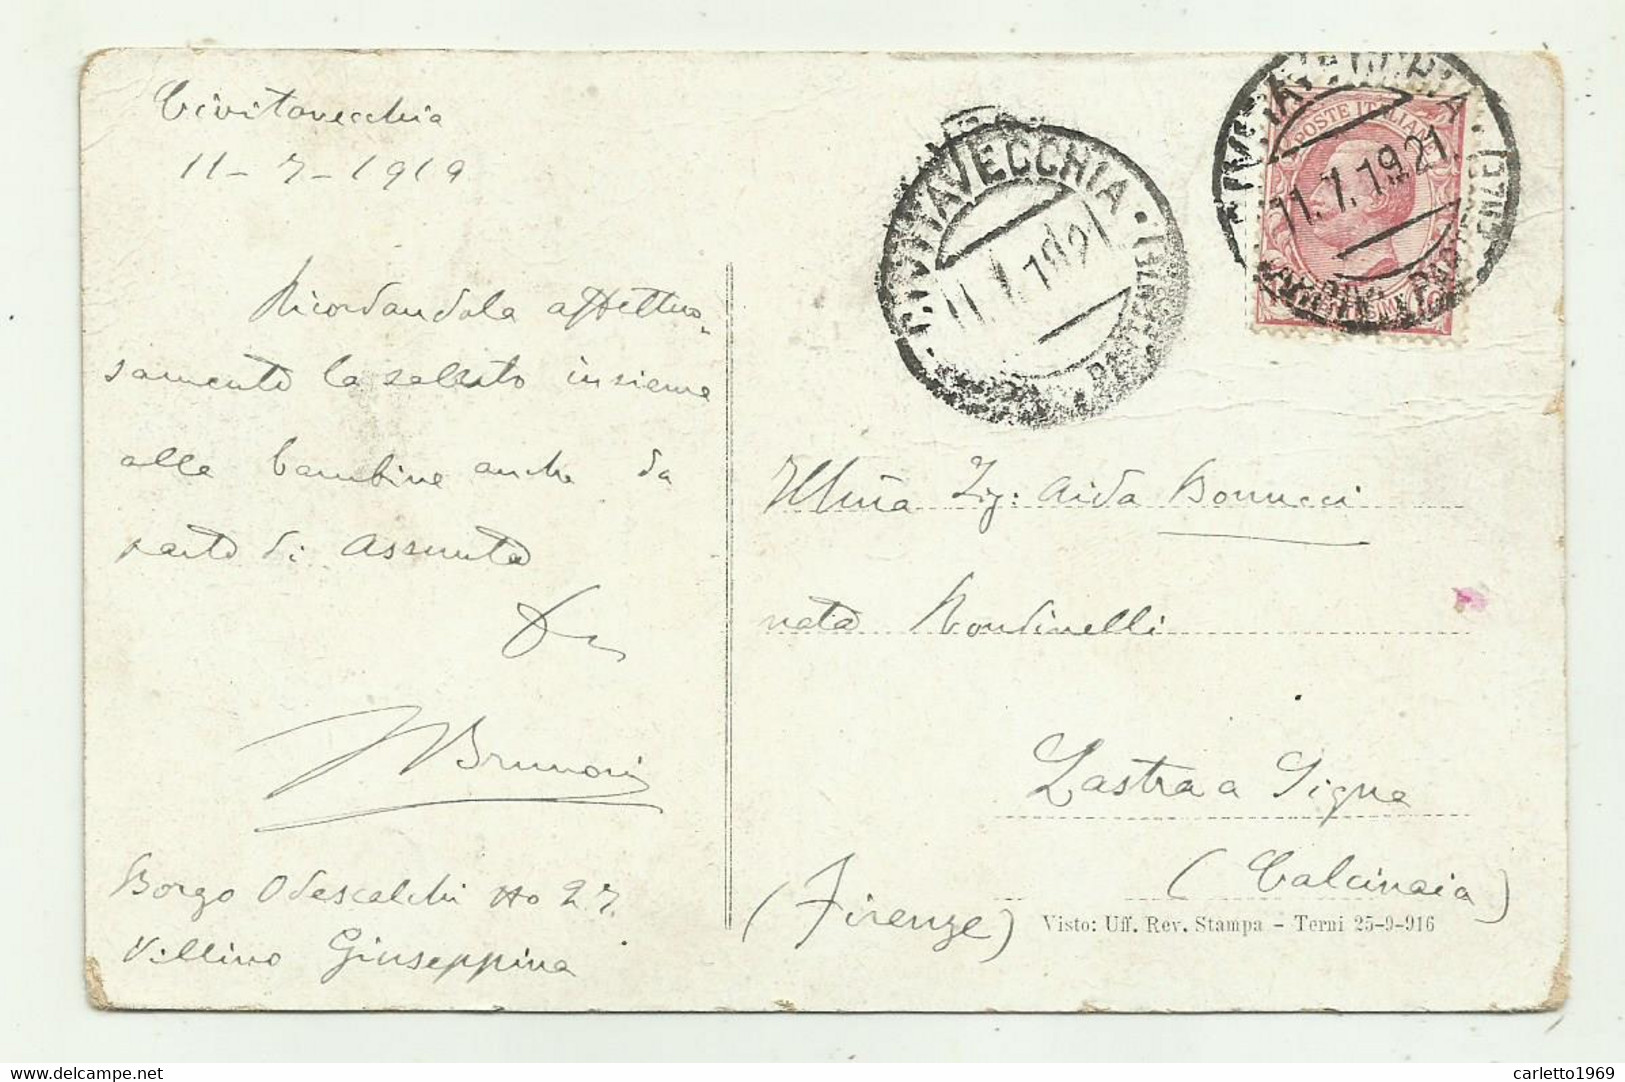 Civitavecchia
11-7-1919
Ricordandola affettuo-
samente la saluto insieme
alle bambine anche da
parte di Assunta
Brunori
Borgo Odescalchi No 27.
Villino Giuseppina
CIVITAVECCHIA
11.7.19 21
POSTE ITALIANE
11.7.19 21
Illma Sig: Aida Bonucci
nata Rondinelli
Lastra a Signa
(Calcinaia)
(Firenze)
Visto: Uff. Rev. Stampa - Terni 25-9-916
delcampe.net
carletto1969